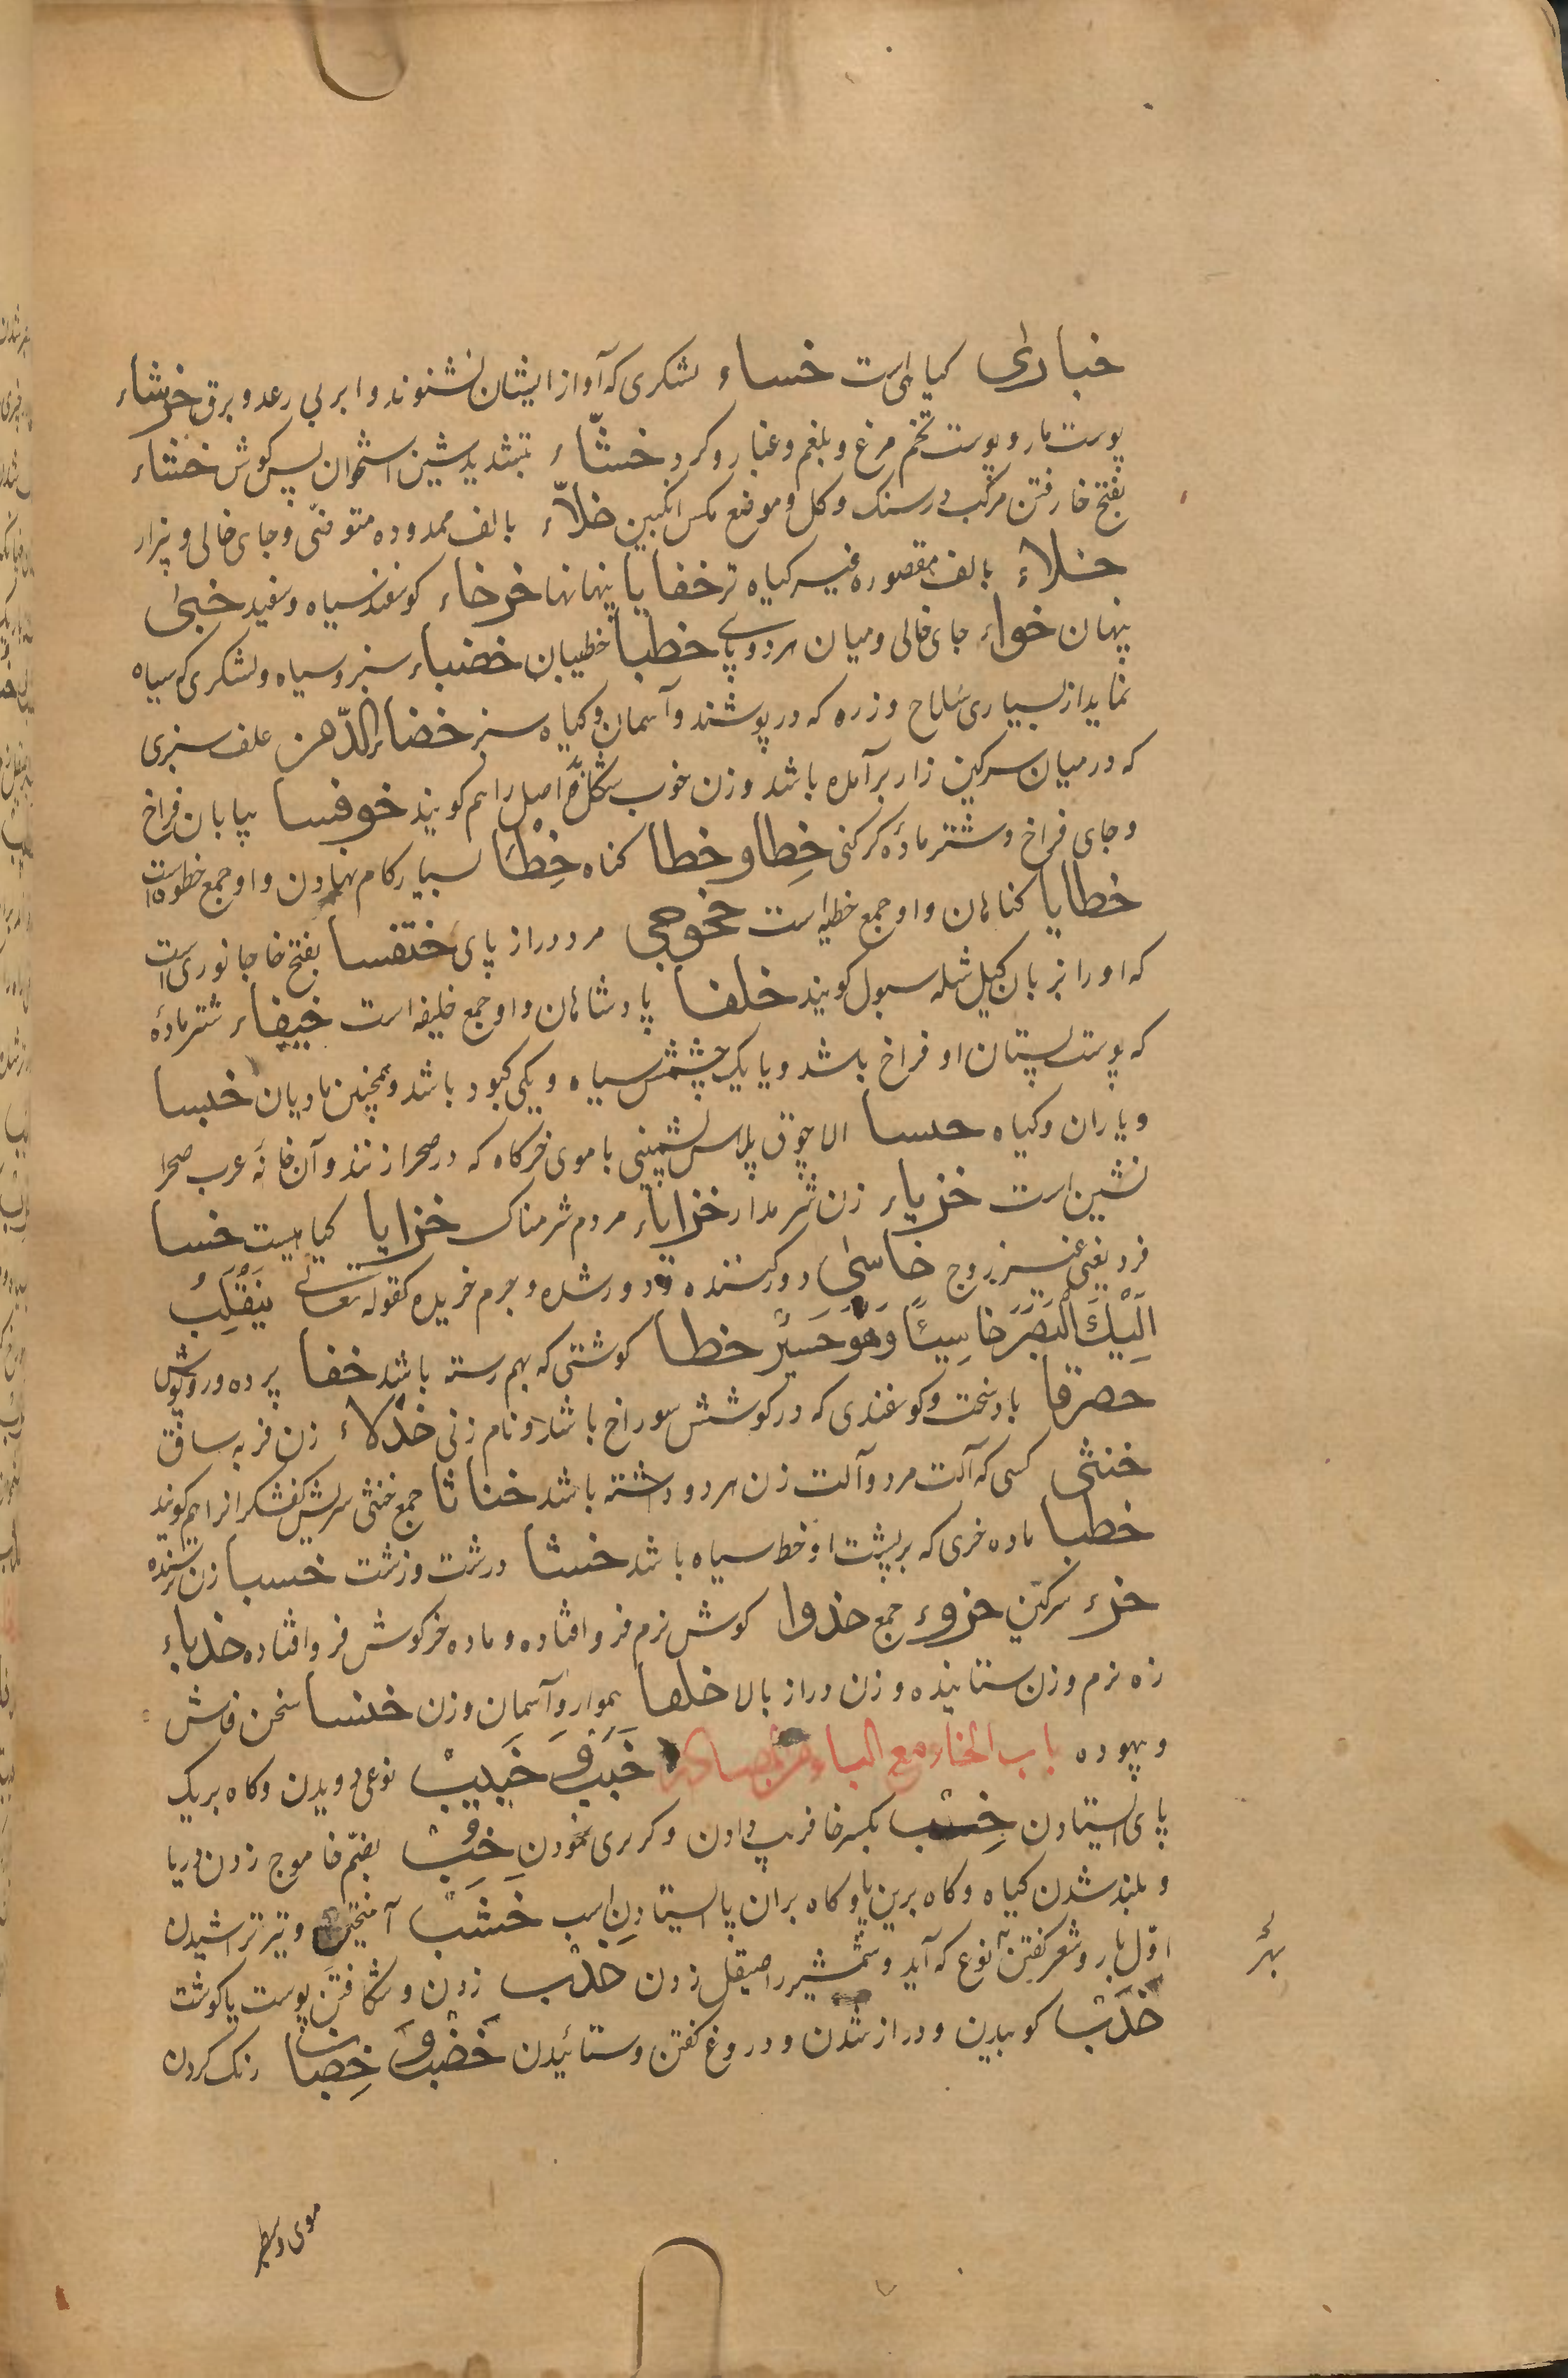 خباری کیاهی است خساء لشکری که آواز ایشان نشنوند و ابر بی رعد و برق خرشاء
پوست مار و پوست تخم مرغ و بلغم و غبار و کرد خشّاء بتشدید شین استخوان پس کوش خشاء
بفتح خا رفتن مرکب در سنک و کل و موضع مکس انکبین خلاّء بالف ممدوده متوضّی و جای خالی و بزار
خلاء بالف مقصوره کیاه تر خفایا پنهانها خرخاء کوسفند سیاه و سفید خبیٰ
پنهان خواء جای خالی و میان هر دو پای خطبا خطیبان خضباء سبز و سیاه و لشکری که سیاه
نماید از بسیاری سلاح و زره که در پوشند و آسمان و کیاه سبز خضراء الدّمن علف سبزی
که در میان سرکین زار برآمده باشد و زن خوب شکل اصل را هم کویند خوفسا بیابان فراخ
و جای فراخ و شتر مادهٔ کرکنی خِطا و خطا کناه خِطْا بسیار کام نهادن و او جمع خطوه است
خطایا کناهان و او جمع خطیه است خجوجی مرد دراز پای ختفسا بفتح خا جانوری است
که او را بزبان کیل شله سبول کویند خلفا پادشاهان و او جمع خلیفه است خیفاء شتر مادهٔ
که پوست پستان او فراخ باشد و یا یک چشمش سیاه و یکی کبود باشد و همچنین مادیان خبسا
و یاران و کیاه حسا الاچوق پلاس پشمینی با موی خرکاه که در صحرا زنند و آن خانهٔ عرب صحرا
نشین است خزیاء زن شرمدار خزایاء مردم شرمناک خزایا کیاهیست خسا
فرد یعنی غیر زوج خاسیٔ دور کننده و دور شده و جرم خریده کقوله تعالی یَنْقَلِبْ
اِلَیْکَ الْبَصَرَ خاسِیئًا وَهُوَ حَسیرٌ خطا کوشتی که بهم رسته باشد خفا پرده و روپوش
حصرقا باد سخت و کوسفندی که در کوشش سوراخ باشد و نام زنی خدلاء زن فربه ساق
خنثی کسی که آلت مرد و آلت زن هر دو داشته باشد خناثا جمع خنثی سریش کفشکر را هم کویند
خطبا ماده خری که بر پشت او خط سیاه باشد خشا درشت و زشت خسبا زن ترسنده
خزء سرکین خزوء جمع خذوا کوش نرم فرو افتاده و ماده خرکوش فرو افتاده خدباء
زه نرم و زن ستاینده و زن دراز بالا خلقا هموار و آسمان و زن خنسا سخن فاش
و بیهوده باب الخاء مع الباء من مصادر خَبَب وَ خَبیبْ نوعی دویدن و کاه بریک
پای ایستادن خِبّْ بکسر خا فریب دادن و کربزی نمودن خِبْ بضم خا موج زدن دریا
و بلند شدن کیاه و کاه برین پا و کاه بران پا ایستادن اسب خَشَبْ آمیختن و تیر تراشیدن
اوّل بار و شعر کفتن نوع که آید و شمشیر را صیقل زدن خَذْبْ زدن و شکافتن پوست یا کوشت
خَدَبْ کوبیدن و دراز شدن و دروغ کفتن و ستائیدن خَضْب وَ خِضابْ رنک کردن
موی و بسطبر